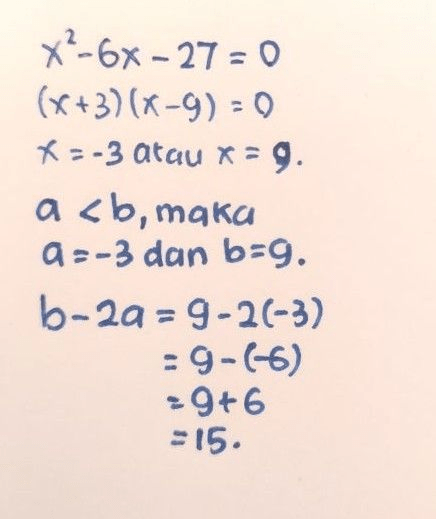 x²-6x-27=0
(x+3)(x-9)=0
x=-3 atau x=9.
a<b, maka
a=-3 dan b=9.
b-2a=9-2(-3)
=9-(-6)
=9+6
=15.